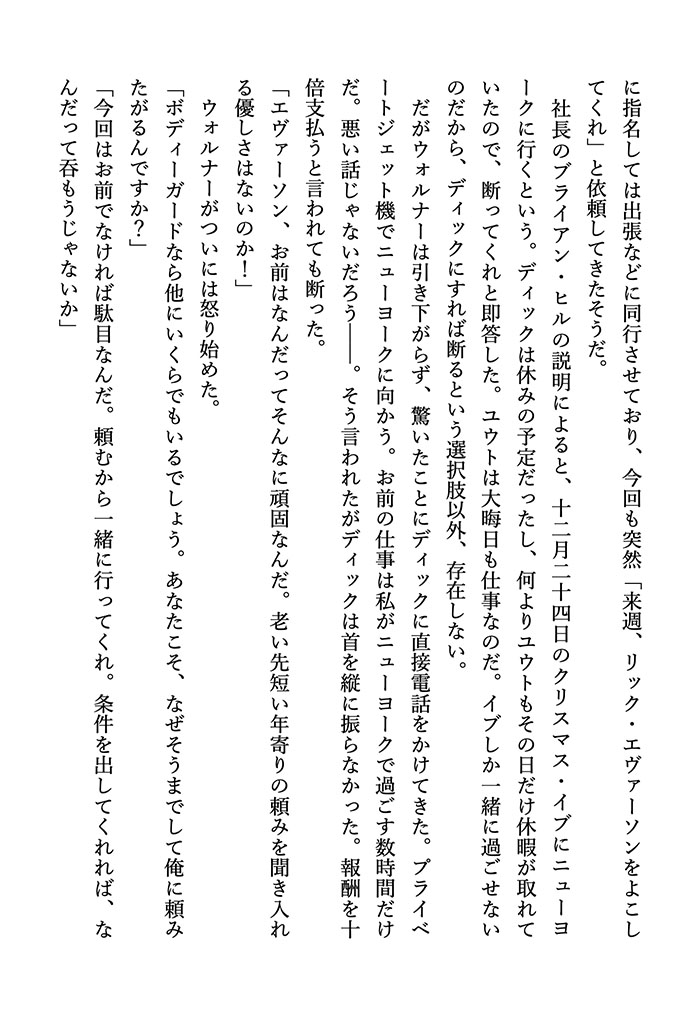 に指名しては出張などに同行させており、今回も突然「来週、リック・エヴァーソンをよこし
てくれ」と依頼してきたそうだ。
　社長のブライアン・ヒルの説明によると、十二月二十四日のクリスマス・イブにニューヨ
ークに行くという。ディックは休みの予定だったし、何よりユウトもその日だけ休暇が取れて
いたので、断ってくれと即答した。ユウトは大晦日も仕事なのだ。イブしか一緒に過ごせない
のだから、ディックにすれば断るという選択肢以外、存在しない。
　だがウォルナーは引き下がらず、驚いたことにディックに直接電話をかけてきた。プライベ
ートジェット機でニューヨークに向かう。お前の仕事は私がニューヨークで過ごす数時間だけ
だ。悪い話じゃないだろう――。そう言われたがディックは首を縦に振らなかった。報酬を十
倍支払うと言われても断った。
「エヴァーソン、お前はなんだってそんなに頑固なんだ。老い先短い年寄りの頼みを聞き入れ
る優しさはないのか！」
　ウォルナーがついには怒り始めた。
「ボディーガードなら他にいくらでもいるでしょう。あなたこそ、なぜそうまでして俺に頼み
たがるんですか？」
「今回はお前でなければ駄目なんだ。頼むから一緒に行ってくれ。条件を出してくれれば、な
んだって呑もうじゃないか」